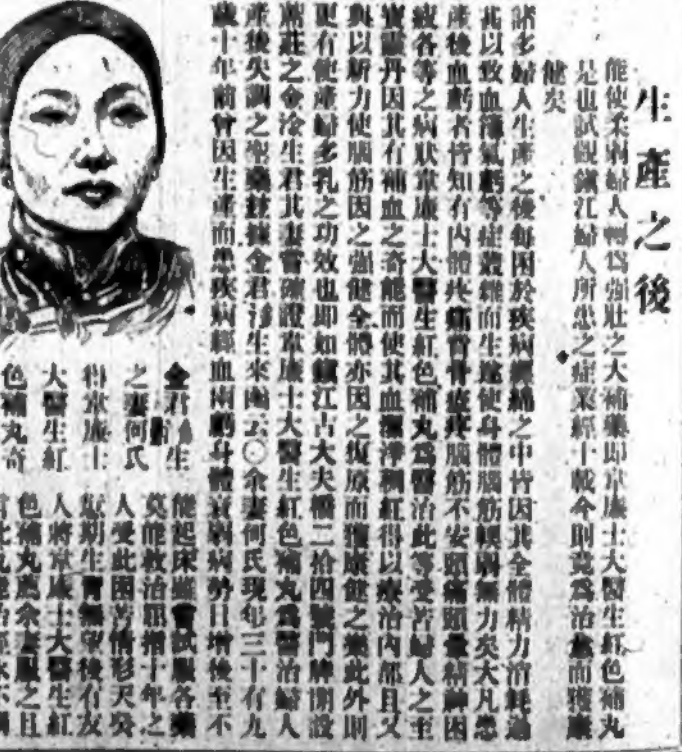 生產之後
能使柔弱婦人轉爲強壯之大補藥即韋廉士大醫生紅色補丸
是也試觀鎭江婦人所患之症業經十載今則竟爲治愈而獲康
健矣
諸多婦人生產之後每困於疾病 痛之中皆因其全體精力消耗過
甚以致血薄氣虧等症叢雜而生遂使身體腦筋輭弱無力矣大凡患
產後血虧者皆知有內體疼痛背骨痠疼腦筋不安頭痛頭暈精神困
疲各等之病狀韋廉士大醫生紅色補丸爲醫治此等受苦婦人之至
寶靈丹因其有補血之奇能而使其血 紅得以療治內部且又
與以新力使腦筋因之強健全體亦因之復原而獲康健之樂此外則
更有使產婦多乳之功效也即如鎭江古大夫橋二拾四號門牌開設
莊之金淦生君其妻嘗確證韋廉士大醫生紅色補丸爲醫治婦人
產後失調之聖藥 據金君淦生來函云○余妻何氏現年三十有九
歲十年前曾因生產而患疾病經血兩虧身體衰弱病勢日增後至不
能起床雖嘗試服各藥
莫能救治屈指十年之
人受此困苦情形天癸
期生育無望後有友
人將韋廉士大醫生紅
色補丸薦余妻服之且
金君淦生
之妻何氏
得韋廉士
大醫生紅
色補丸奇